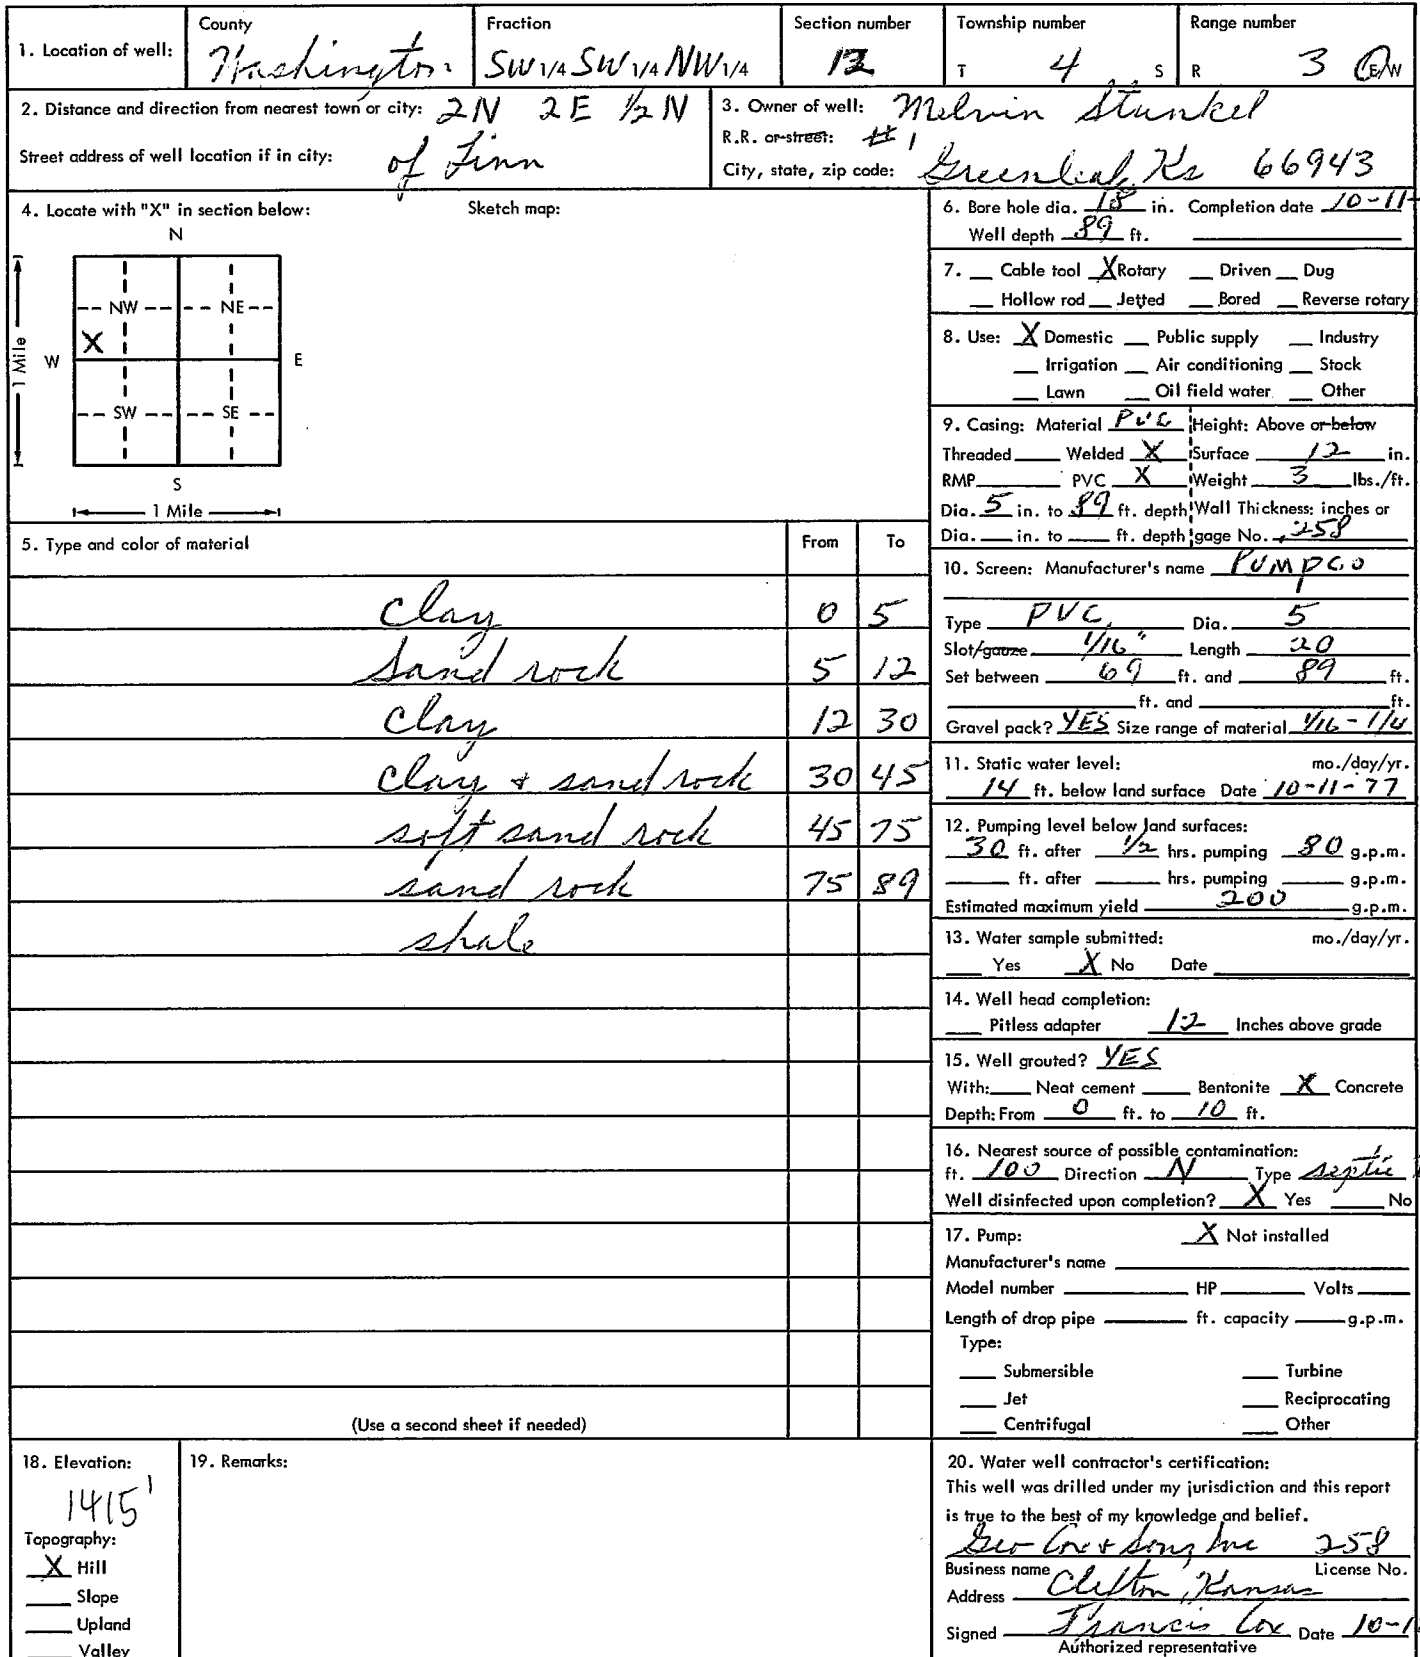 1. Location of well: County Washington Fraction SW 1/4 SW 1/4 NW 1/4 Section number 12 Township number T 4 S Range number R 3 E/W
2. Distance and direction from nearest town or city: 2N 2E 1/2 N
Street address of well location if in city: of Linn
3. Owner of well: Melvin Stunkel
R.R. or street: #1
City, state, zip code: Greenleaf, Ks 66943
4. Locate with "X" in section below: Sketch map:
N
NW NE
X
W E
1 Mile
SW SE
S
1 Mile
5. Type and color of material From To
clay 0 5
sand rock 5 12
clay 12 30
clay + sand rock 30 45
soft sand rock 45 75
sand rock 75 89
shale
(Use a second sheet if needed)
6. Bore hole dia. 18 in. Completion date 10-11-
Well depth 89 ft.
7. Cable tool X Rotary Driven Dug
Hollow rod Jetted Bored Reverse rotary
8. Use: X Domestic Public supply Industry
Irrigation Air conditioning Stock
Lawn Oil field water Other
9. Casing: Material PVC Height: Above or below
Threaded Welded X Surface 12 in.
RMP PVC X Weight 3 lbs./ft.
Dia. 5 in. to 89 ft. depth Wall Thickness: inches or
Dia. in. to ft. depth gage No. .258
10. Screen: Manufacturer's name Pumpco
Type PVC Dia. 5
Slot/gauze 1/16" Length 20
Set between 69 ft. and 89 ft.
ft. and ft.
Gravel pack? YES Size range of material 1/16 - 1/4
11. Static water level: mo./day/yr.
14 ft. below land surface Date 10-11-77
12. Pumping level below land surfaces:
30 ft. after 1/2 hrs. pumping 80 g.p.m.
ft. after hrs. pumping g.p.m.
Estimated maximum yield 200 g.p.m.
13. Water sample submitted: mo./day/yr.
Yes X No Date
14. Well head completion:
Pitless adapter 12 Inches above grade
15. Well grouted? YES
With: Neat cement Bentonite X Concrete
Depth: From 0 ft. to 10 ft.
16. Nearest source of possible contamination:
ft. 100 Direction N Type septic
Well disinfected upon completion? X Yes No
17. Pump: X Not installed
Manufacturer's name
Model number HP Volts
Length of drop pipe ft. capacity g.p.m.
Type:
Submersible Turbine
Jet Reciprocating
Centrifugal Other
18. Elevation:
1415'
Topography:
X Hill
Slope
Upland
Valley
19. Remarks:
20. Water well contractor's certification:
This well was drilled under my jurisdiction and this report
is true to the best of my knowledge and belief.
Geo Cox & Sons Inc 258
Business name License No.
Address Clifton, Kansas
Signed Francis Cox Date 10-1
Authorized representative